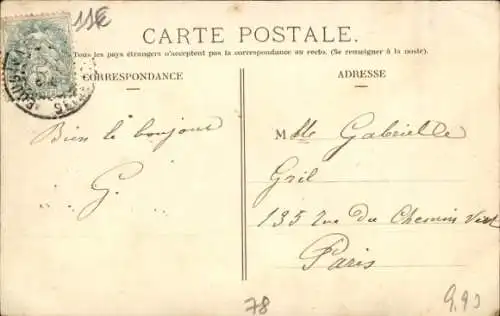 11€
CARTE POSTALE.
Tous les pays étrangers n'acceptent pas la correspondance au recto. (Se renseigner à la poste).
CORRESPONDANCE
ADRESSE
Bien le bonjour
G.
Mlle Gabrielle
Gril
135 rue du Chemin Vert
Paris
78